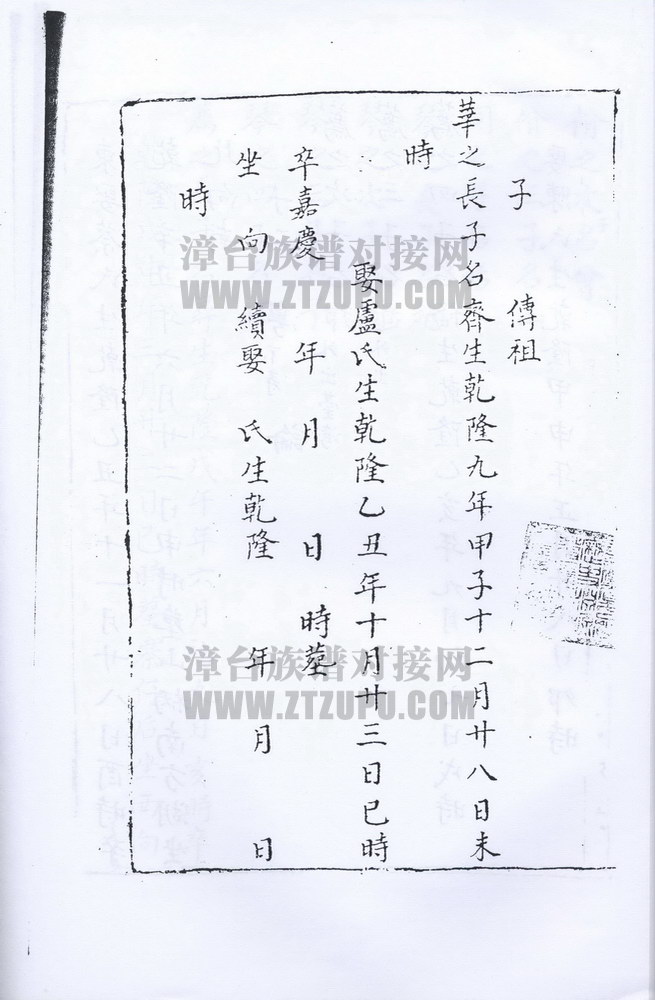 子　傳祖
華之長子名齊生乾隆九年甲子十二月廿八日未
時
娶盧氏生乾隆乙丑年十月廿三日巳時
卒嘉慶　年　月　日　時墓
坐　向　續娶　氏生乾隆　年　月　日
時
漳台族谱对接网
WWW.ZTZUPU.COM
漳台族谱对接网
WWW.ZTZUPU.COM